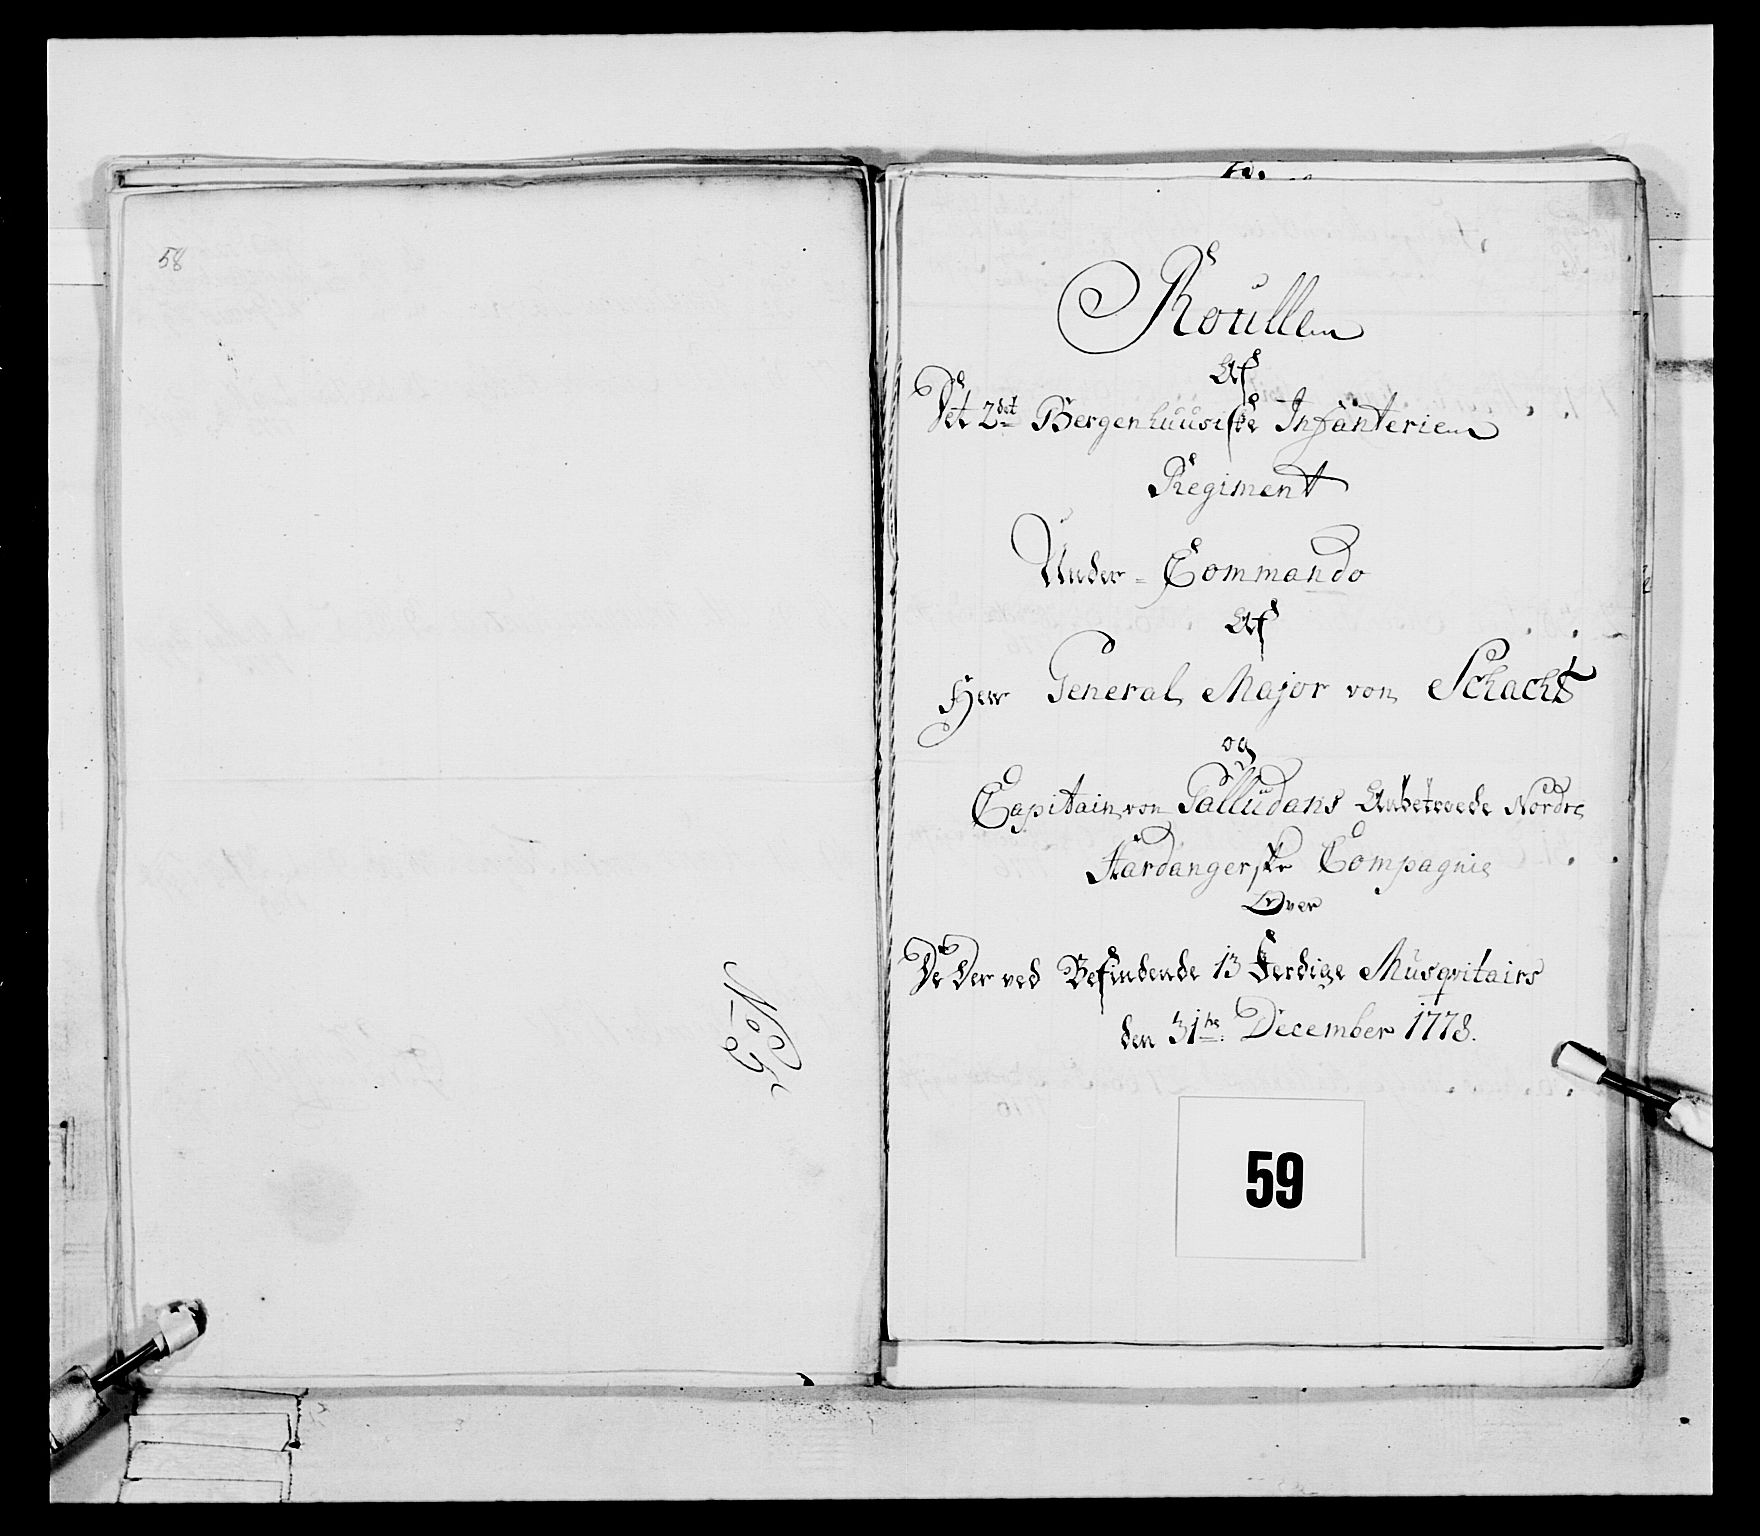 58
No 5
Roullen
Af
Det 2det Bergenhuusiske Infanterie
Regiment
Under - Commando
Af
Herr General Major von Schacht
og
Capitain von Palludans Anbetroede Nordre
Hardangerske Compagnie
Over
De Der ved Befindende 13 Ferdige Musqvitairs
den 31te December 1778.
59